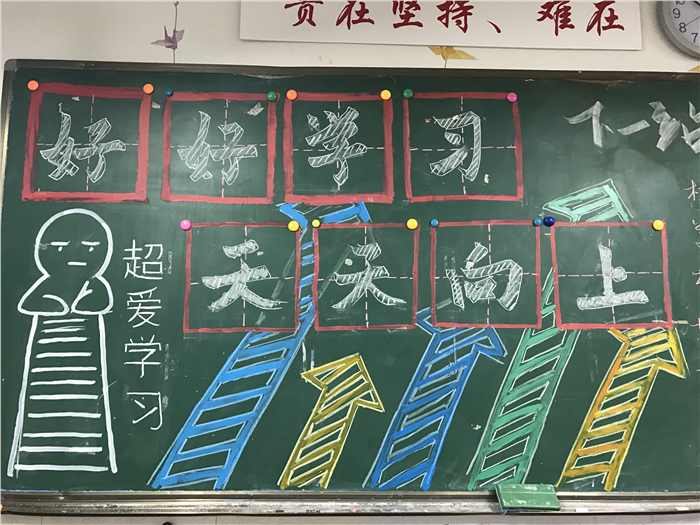 贵在坚持、难在
好好学习
下一站
天天向上
超爱学习